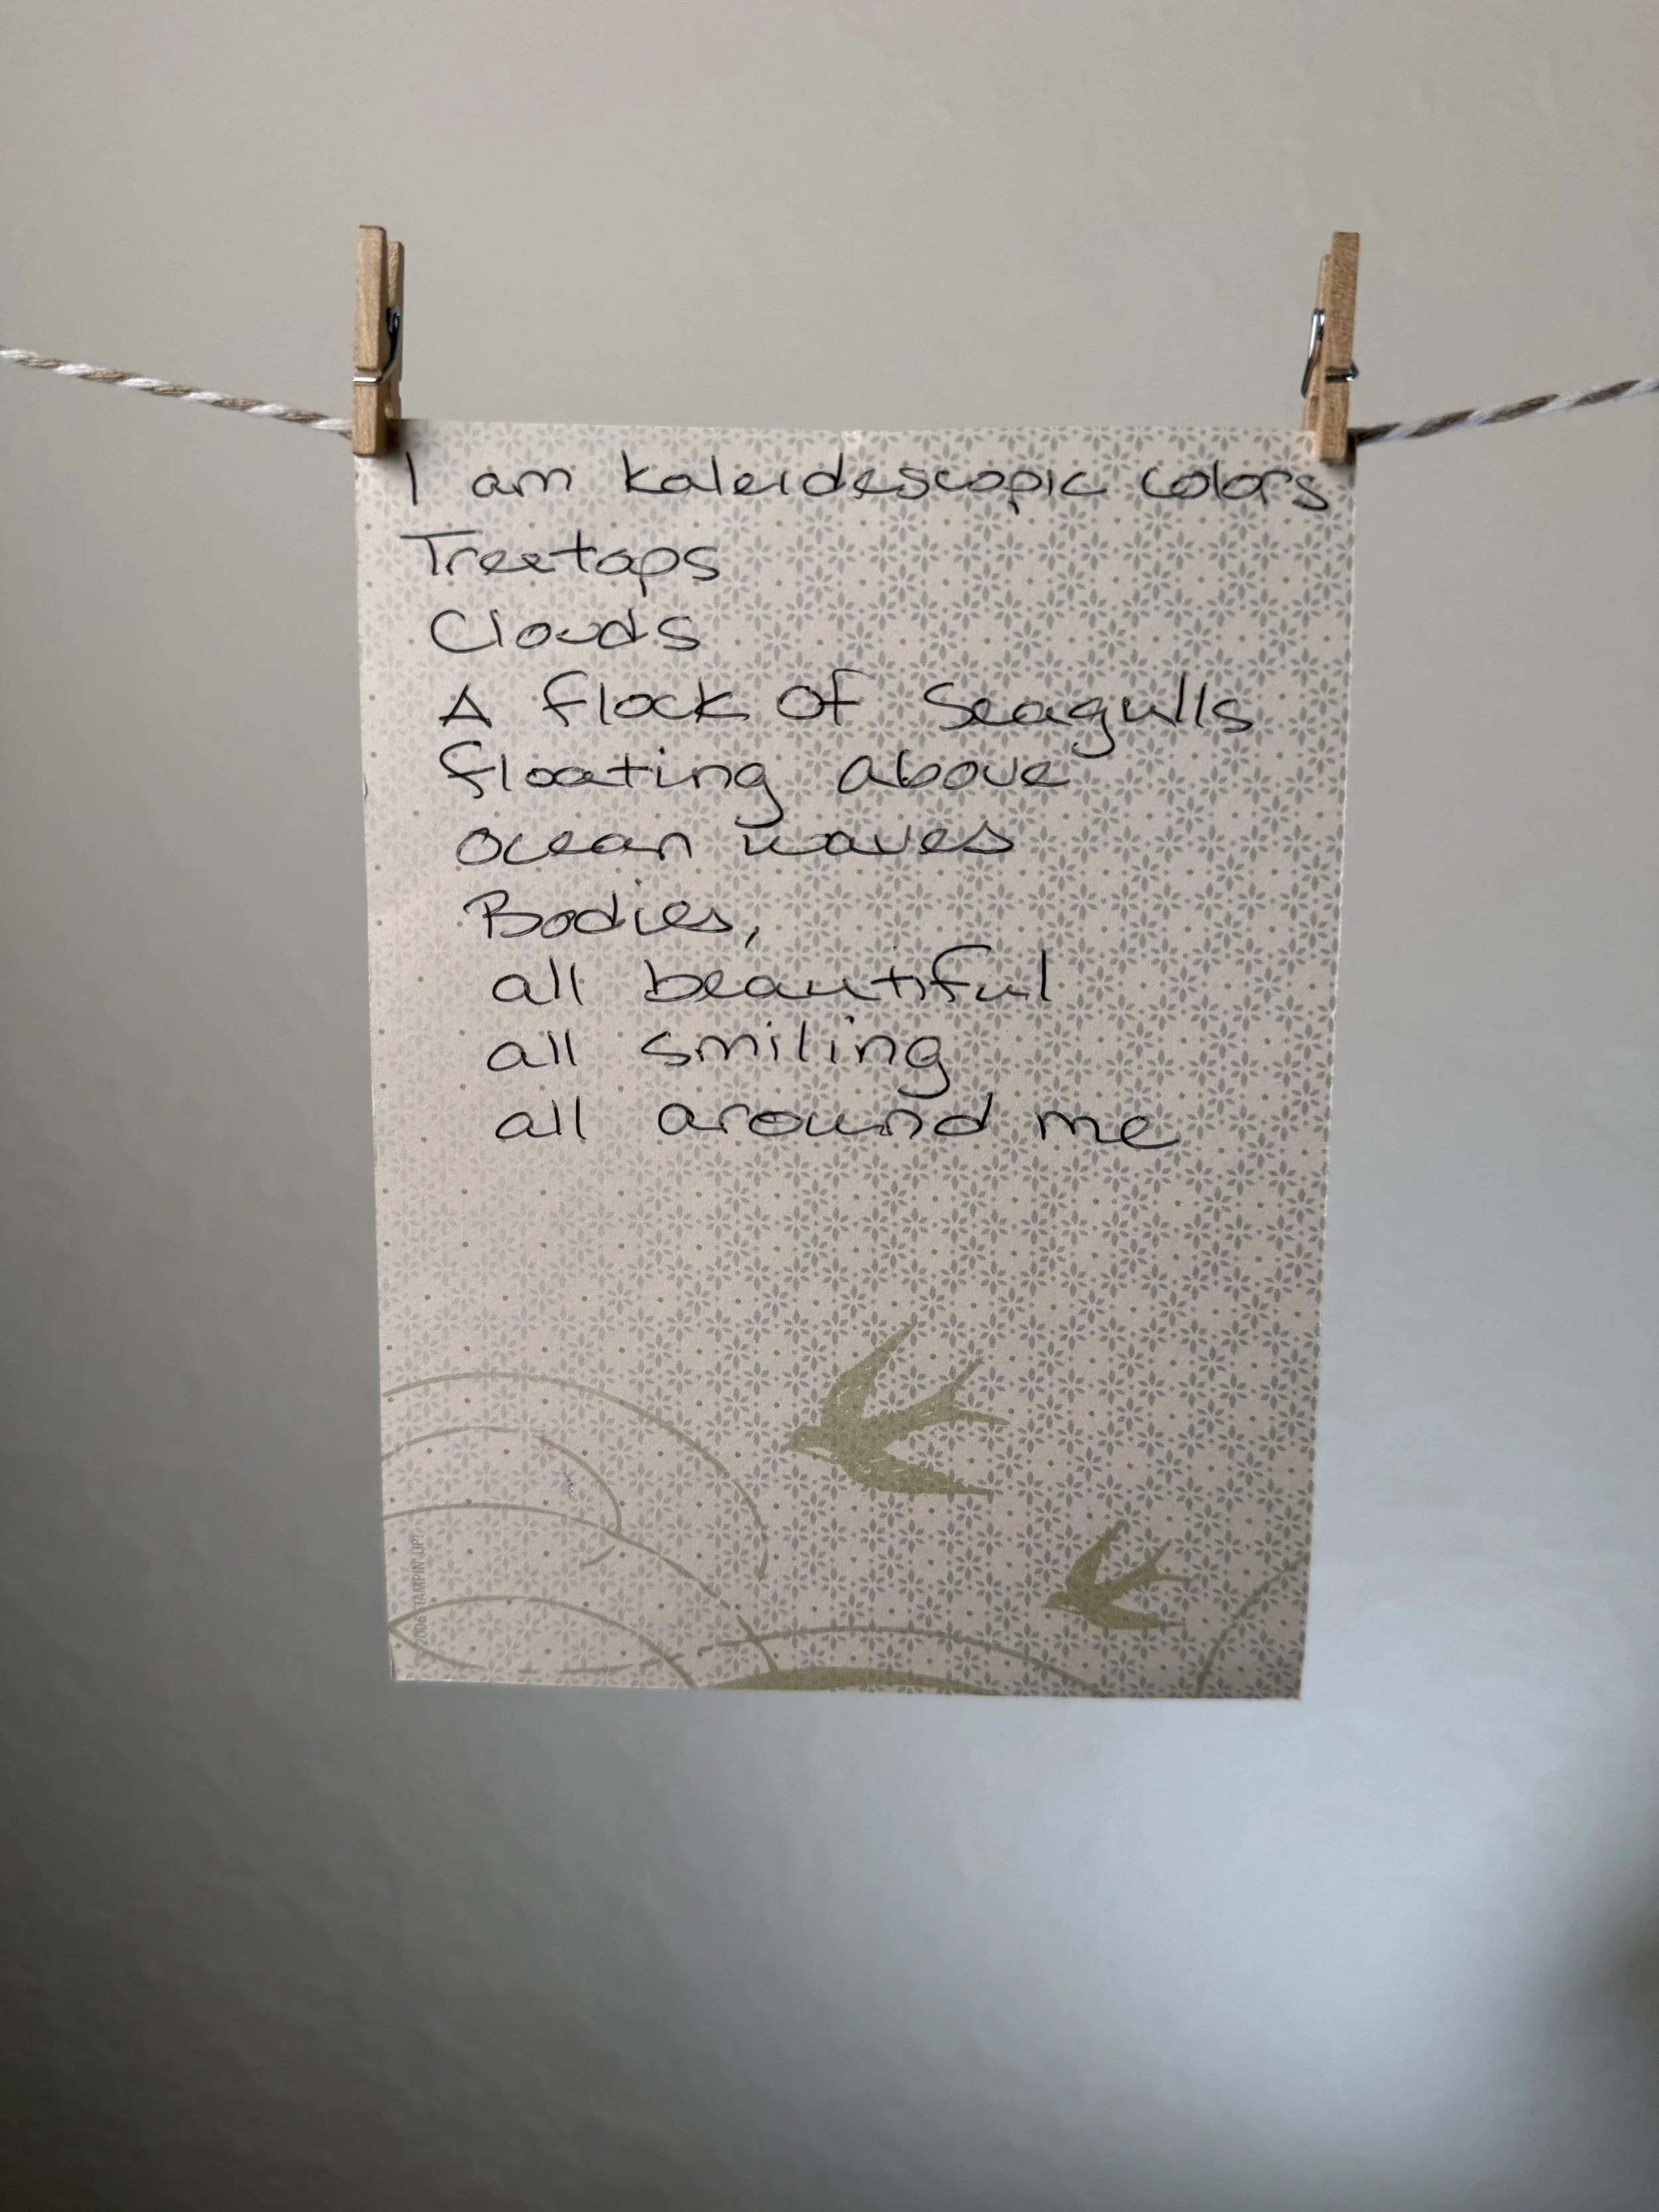 I am kaleidescopic colors
Treetops
Clouds
A flock of Seagulls
floating above
ocean waves
Bodies,
all beautiful
all smiling
all around me
2006 STAMPIN' UP!